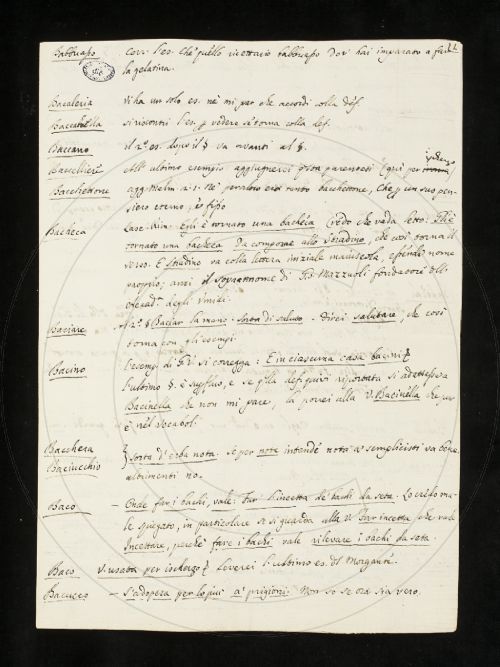 Babbuasso Corr. l'es. Che quello ricettario babbuasso dov' hai imparato a far
la gelatina.
Bacaleria Vi ha un solo es. nè mi par che accordi colla def.
Baccanella si riscontri l'es. p vedere se torna colla def.
Baccano il 2° es. dopo il § va avanti al §.
Baccelliere All' ultimo esempio aggiugnerei questa parentesi (qui per ischerzo
Bacchettone agg. Melm. 2. 1. Nè perciò era tanto bacchettone, che p un suo pen-
siero eterno, e fisso
Bacheca Lasc. Rim. Egli è tornato una bacheca. Credo che vada letto:
tornato una bacheca Da compare allo Stradino, che così torna il
verso. E Stradino va colla lettera iniziale maiuscola, essendo nome
proprio; anzi il soprannome di Mazzuoli fondatore dell'
degli Umidi.
Baciare Al 2° § Baciar la mano. Sorta di saluto. Direi salutare, che così
torna con gli esempi.
Bacino L'esemp. di si corregga: E in ciascuna casa bacini
l'ultimo §. è supfluo, e se qlla def. quivi riportata si adattasse a
Bacinella che non mi pare, la porrei alla V. Bacinella che pur
è nel Vocab.
Bacchera
Baciucchio } Sorta d'erba nota. Se per nota intende nota a' semplicisti va bene.
altrimenti no.
Baco Onde far i bachi, vale: Far l'incetta de' bachi da seta. Lo credo ma-
le spiegato, in particolare se si guarda alla V. Far incetta che vale
Incettare, perchè fare i bachi vale rilevare i bachi da seta.
Baco V. usata per ischerzo Leverei l'ultimo es. del Morgante.
Bacucco — S'adopera per lo più a' prigioni. Non so se ora sia vero.